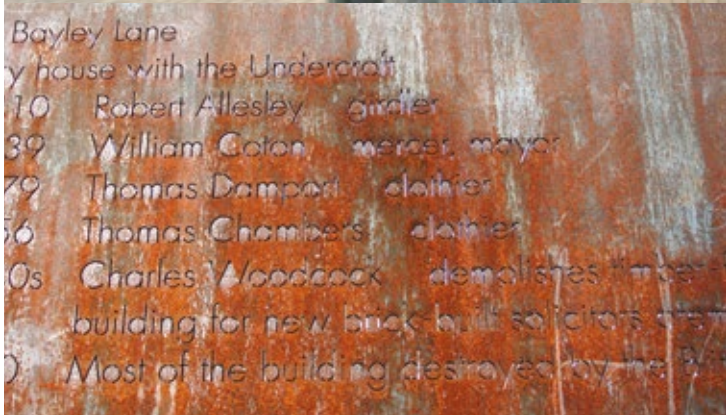 Bayley Lane
y house with the Undercroft
10 Robert Allesley girdler
39 William Coton mercer, mayor
79 Thomas Damport clothier
56 Thomas Chambers clothier
0s Charles Woodcock demolishes timber
building for new brick-built solicitors
0 Most of the building destroyed by the